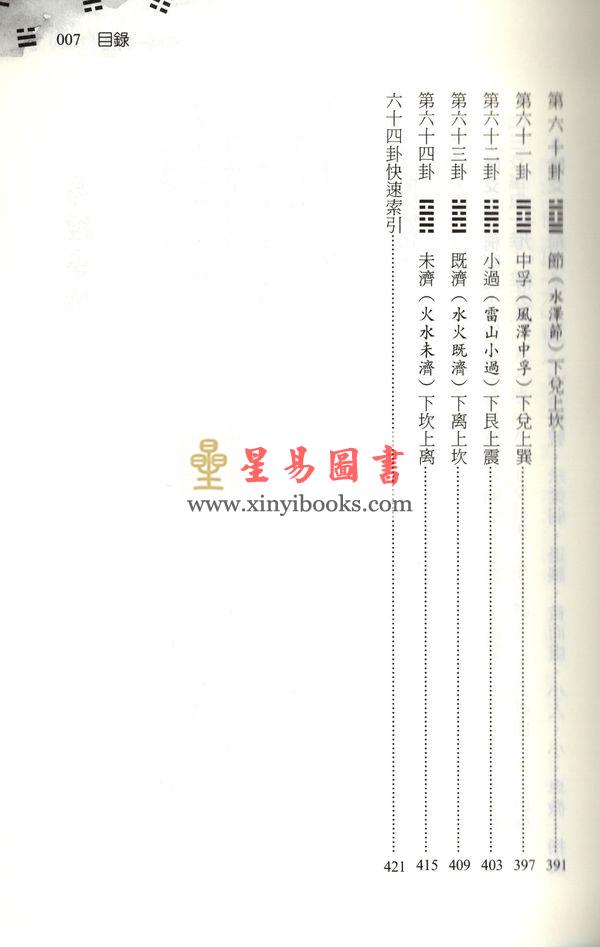 007 目錄
第六十卦 ䷻ 節（水澤節）下兌上坎 391
第六十一卦 ䷼ 中孚（風澤中孚）下兌上巽 397
第六十二卦 ䷽ 小過（雷山小過）下艮上震 403
第六十三卦 ䷾ 既濟（水火既濟）下离上坎 409
第六十四卦 ䷿ 未濟（火水未濟）下坎上离 415
六十四卦快速索引 421
星易圖書
www.xinyibooks.com